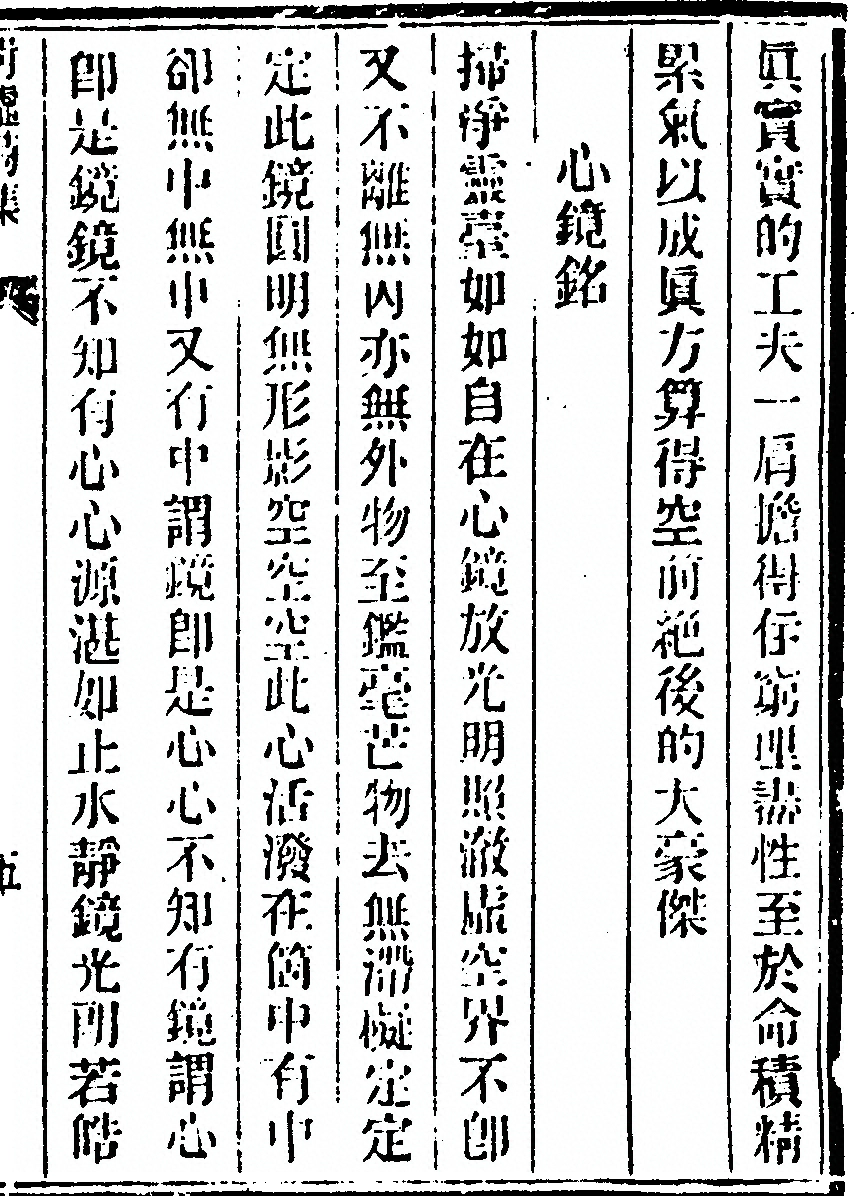 眞實實的工夫一肩擔得任窮理盡性至於命積精
累氣以成眞方算得空前絕後的大豪傑
心鏡銘
掃淨靈臺如如自在心鏡放光明照澈虛空界不卽
又不離無內亦無外物至鑑毫芒物去無滯礙定定
定此鏡圓明無形影空空空此心活潑在箇中有中
卻無中無中又有中謂鏡卽是心心不知有鏡謂心
卽是鏡鏡不知有心心源湛如止水靜鏡光朗若皓
集
五